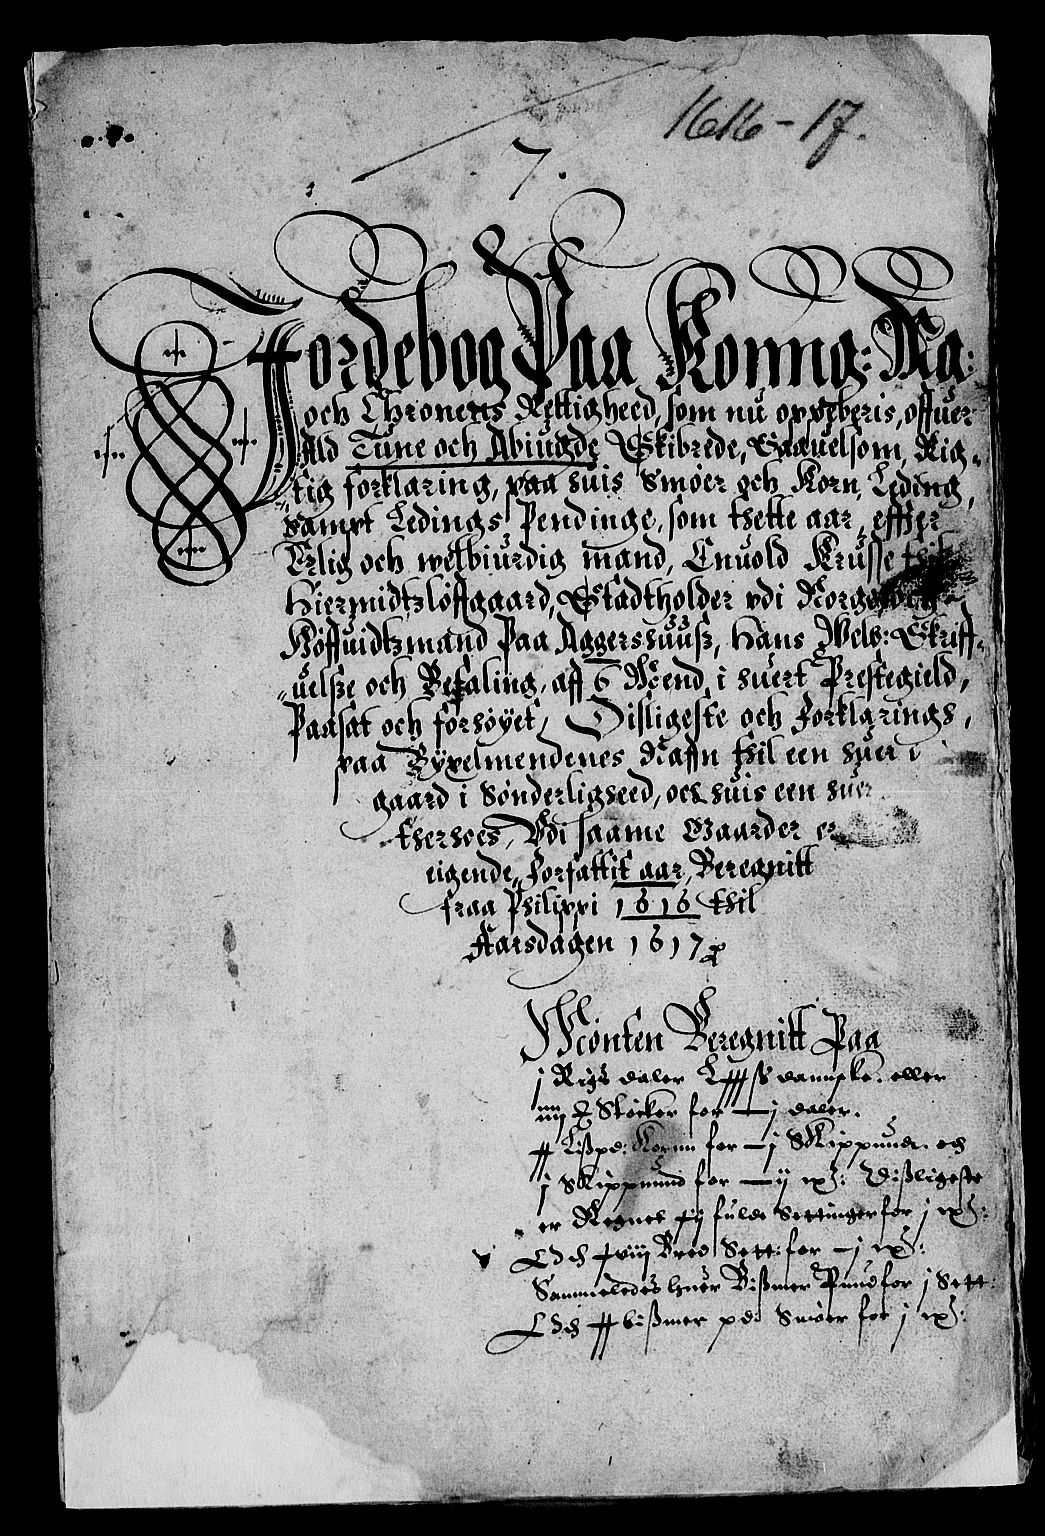 1616-17.
7.
Jordebog Paa Konng: Ma:
och Chronens Rettigheed, som nu oppeberis, offuer
Ald Tune och Abiugde Skibrede, Saauelsom Rig-
tig forklaring, paa huis Smøer och Korn, Leding,
sampt Ledings Pendinge, som thette aar, effter
Erlig och welbiurdig mand, Enuold Krusse thil
Hiermidtzløffgaard, Stadtholder vdi Norge och
Høffuidtzmand Paa Aggershuusz, Hans Welb: Skriff-
uelsze och Befaling, aff 6 Mend i huert Prestegield,
Paasat och forhøyet, Disligeste och Forklarings,
paa Bÿxelmendenes Naffn thil een huer i
gaard i Sønderligheed, och huis een huer
therhoes, Vdi saame Gaarder er
eigende, Forfattit aar, Beregnitt
fraa Philippi 1616 thil
Aarsdagen 1617
Mønten Beregnitt Paa
j Rigs daler danske. eller
iiij Støcker for — j daler.
Lißpd: Kornn for — j Skippund. och
j Skippund for — ij Dißligeste
er Regnet fulde Settinger for j
Och xviij Bred Sett: for — j
Sammeledes huer Bißmer Pund for j Sett:
Och bißmer pd: Smøer for j